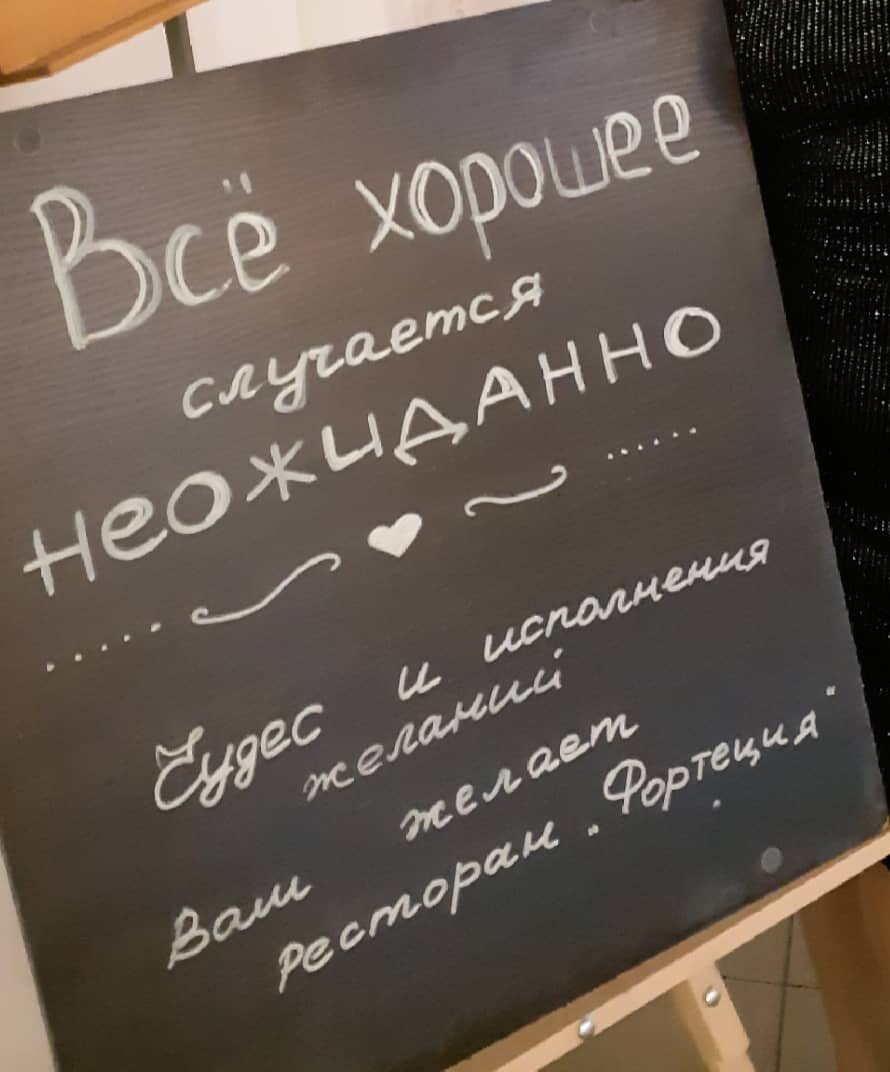 Всё хорошее
случается
НеОЖИДАННО
Чудес и исполнения
желаний
желает
Ваш
ресторан „Фортеция“